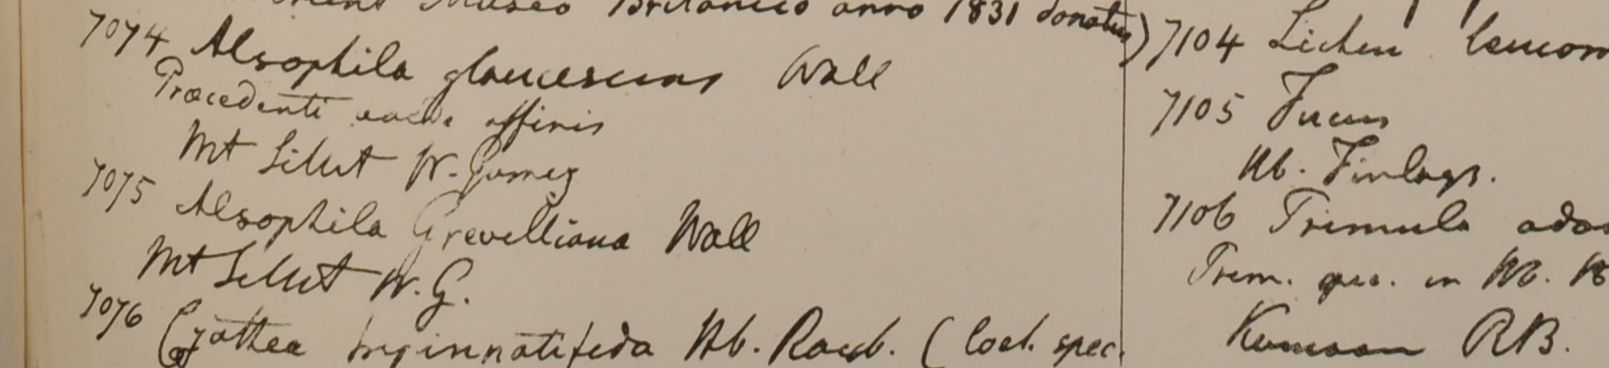 Museo Britanico anno 1831 donatus)
7074 Alsophila glaucescens Wall
Præcedenti affinis
Mt Silhet W. Gomez
7075 Alsophila Grevilliana Wall
Mt Silhet W. G.
7076 Cyathea tripinnatifida Hb. Roxb. (Coel. spec.
7104 Lichen leucom
7105 Fucus
Hb. Finlays.
7106 Tremula
Trem. in Hb.
Kumaon RB.